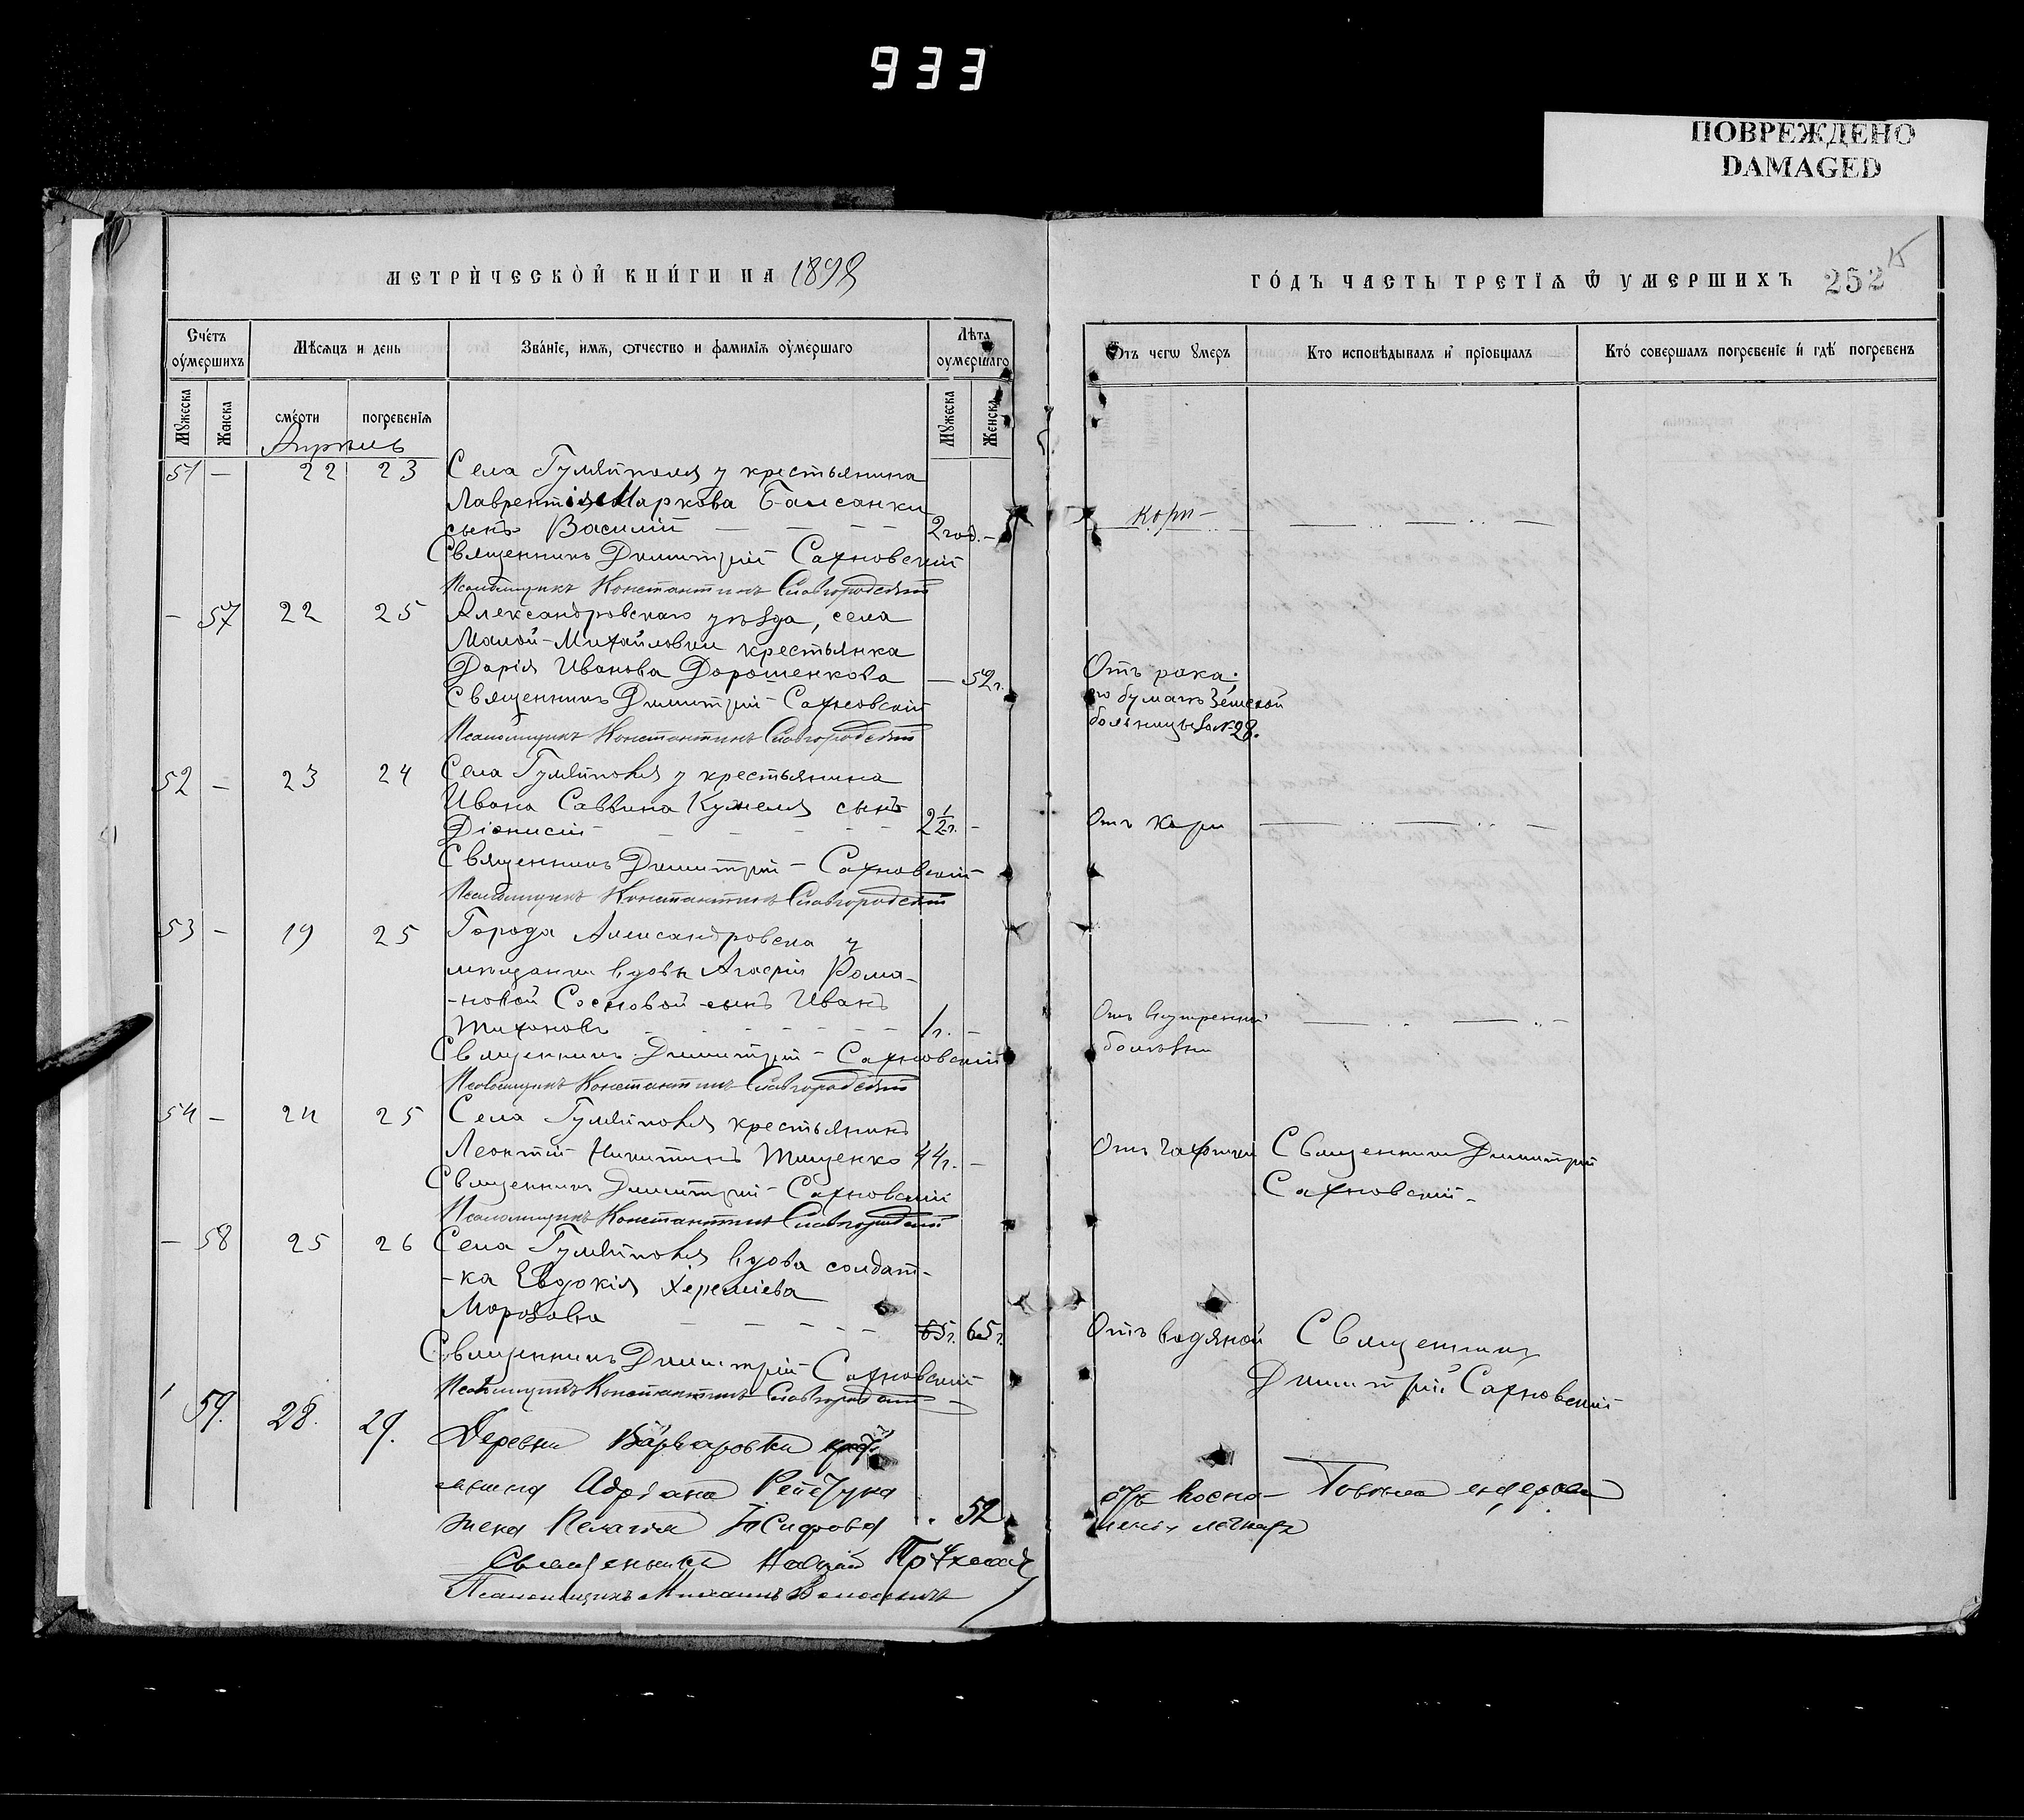 933
ПОВРЕЖДЕНО
DAMAGED
МЕТРИЧЕСКОЙ КНИГИ НА 1898
ГОДЪ ЧАСТЬ ТРЕТІѦ Ѿ УМЕРШИХЪ 252 15
Счетъ оумершихъ
Мѣсяцъ и день
Званіе, имѧ, отчество и фамиліѧ оумершаго
Лѣта оумершаго
Ѿтъ чегѡ умеръ
Кто исповѣдывалъ и пріобщалъ
Кто совершалъ погребеніе и гдѣ погребенъ
Мужеска
Женска
смерти
погребеніѧ
Мужеска
Женска
Апрѣль
51 – 22 23 Села Гуляйполя у крестьянина
Лаврентія Маркова
сынъ Василій – – – – 2 год. – кори –
Священникъ Димитрій Сахновскій
Псаломщикъ Константинъ Славгородскій
– 57 22 25 Александровскаго уѣзда, села
Малой-Михайловки крестьянка
Дарія Иванова Дорошенкова – 52 г. Отъ рака;
Священникъ Димитрій Сахновскій по бумагѣ Земской
больницы за № 28.
Псаломщикъ Константинъ Славгородскій
52 – 23 24 Села Гуляйполя у крестьянина
Ивана Саввина Кужеля сынъ
Діонисій – – – – 2½ г. – Отъ кори
Священникъ Димитрій Сахновскій
Псаломщикъ Константинъ Славгородскій
53 – 19 25 Города Александровска у
мѣщанки вдовы Агафіи Рома-
-новой Сосновой сынъ Иванъ
Тихоновъ – – – – 1 г. – Отъ внутренней
болѣзни
Священникъ Димитрій Сахновскій
Псаломщикъ Константинъ Славгородскій
54 – 24 25 Села Гуляйполя крестьянинъ
Леонтій Никитинъ Тищенко 44 г. – Отъ чахотки Священникъ Димитрій
Сахновскій
Священникъ Димитрій Сахновскій
Псаломщикъ Константинъ Славгородскій
– 58 25 26 Села Гуляйполя вдова солдат-
-ка Евдокія
Морозова – – – – 65 г. 65 г. Отъ водяной Священникъ
Димитрій Сахновскій
Священникъ Димитрій Сахновскій
Псаломщикъ Константинъ Славгородскій
59. 28. 29. Деревни Варваровки
Адріана
жена Пелагія 52 отъ воспа-
Священникъ
Псаломщикъ Михаилъ